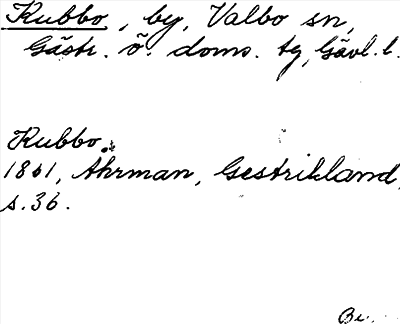 Kubbo, by, Valbo sn,
Gästr. ö. doms. tg, Gävl. l.
Kubbo.
1861, Ahrman, Gestrikland,
s. 36.
Be.